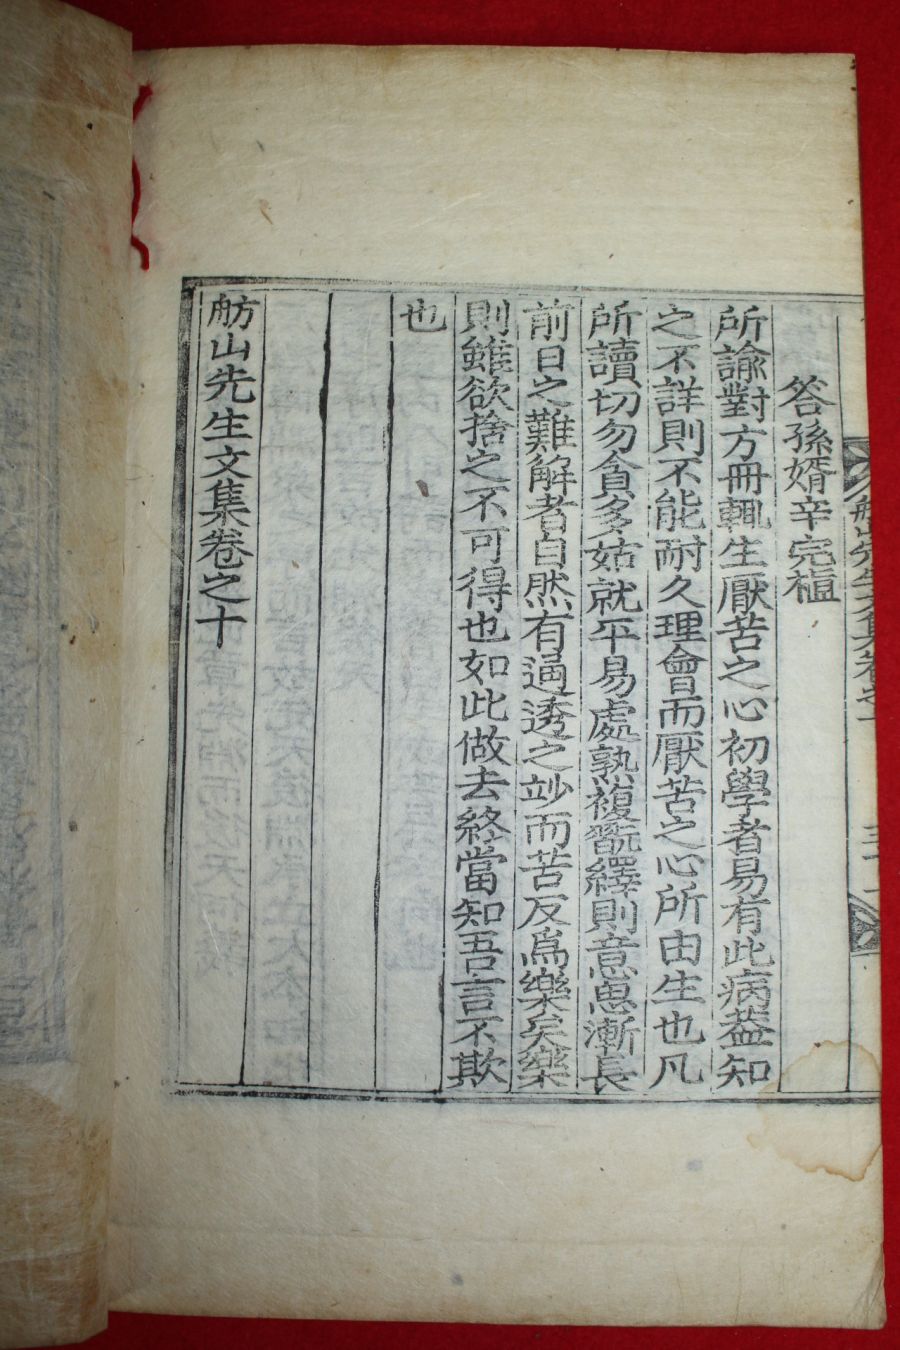 答孫婿辛完植
所諭對方冊輒生厭苦之心初學者易有此病盖知
之不詳則不能耐久理會而厭苦之心所由生也凡
所讀切勿貪多姑就平易處熟複翫繹則意思漸長
前日之難解者自然有通透之妙而苦反爲樂矣樂
則雖欲捨之不可得也如此做去終當知吾言不欺
也
舫山先生文集卷之十